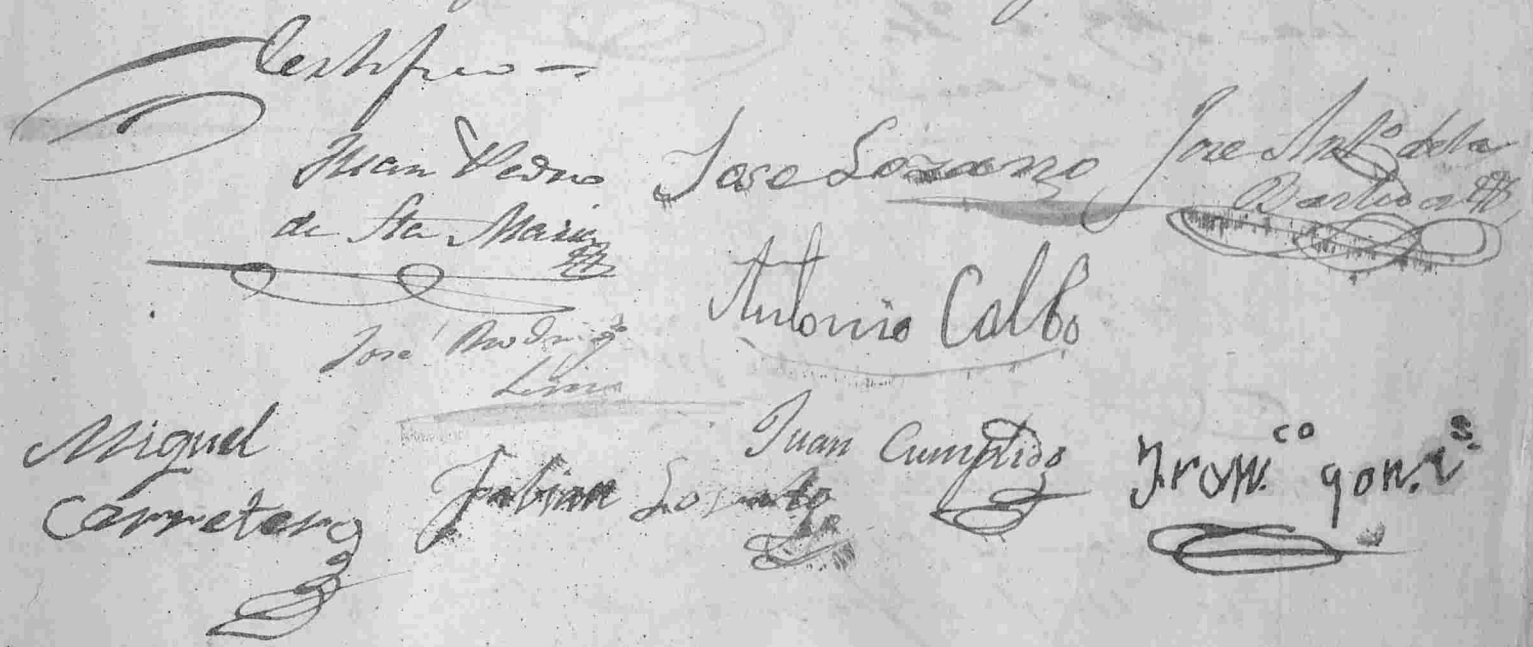 Certifico
Juan Pedro
de Sta Maria
Jose Lozano
Jose Antº. dela
Antonio Calbo
José Rodrigz
Miguel
Carretero
Fabian Lozano
Juan Cumplido
Franco. gon.s